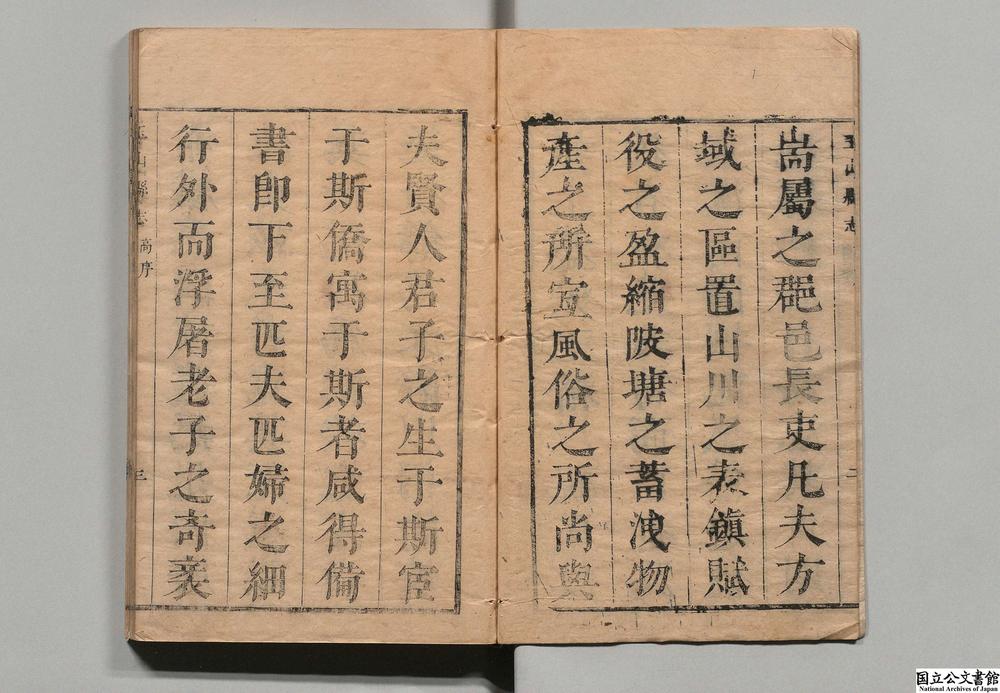 玉山縣志
二
耑屬之郡邑長吏凡夫方
域之區置山川之表鎮賦
役之盈縮陂塘之蓄洩物
產之所宜風俗之所尚與
夫賢人君子之生于斯宦
于斯僑寓于斯者咸得備
書卽下至匹夫匹婦之細
行外而浮屠老子之奇衺
山縣志 高序
三
国立公文書館
National Archives of Japan